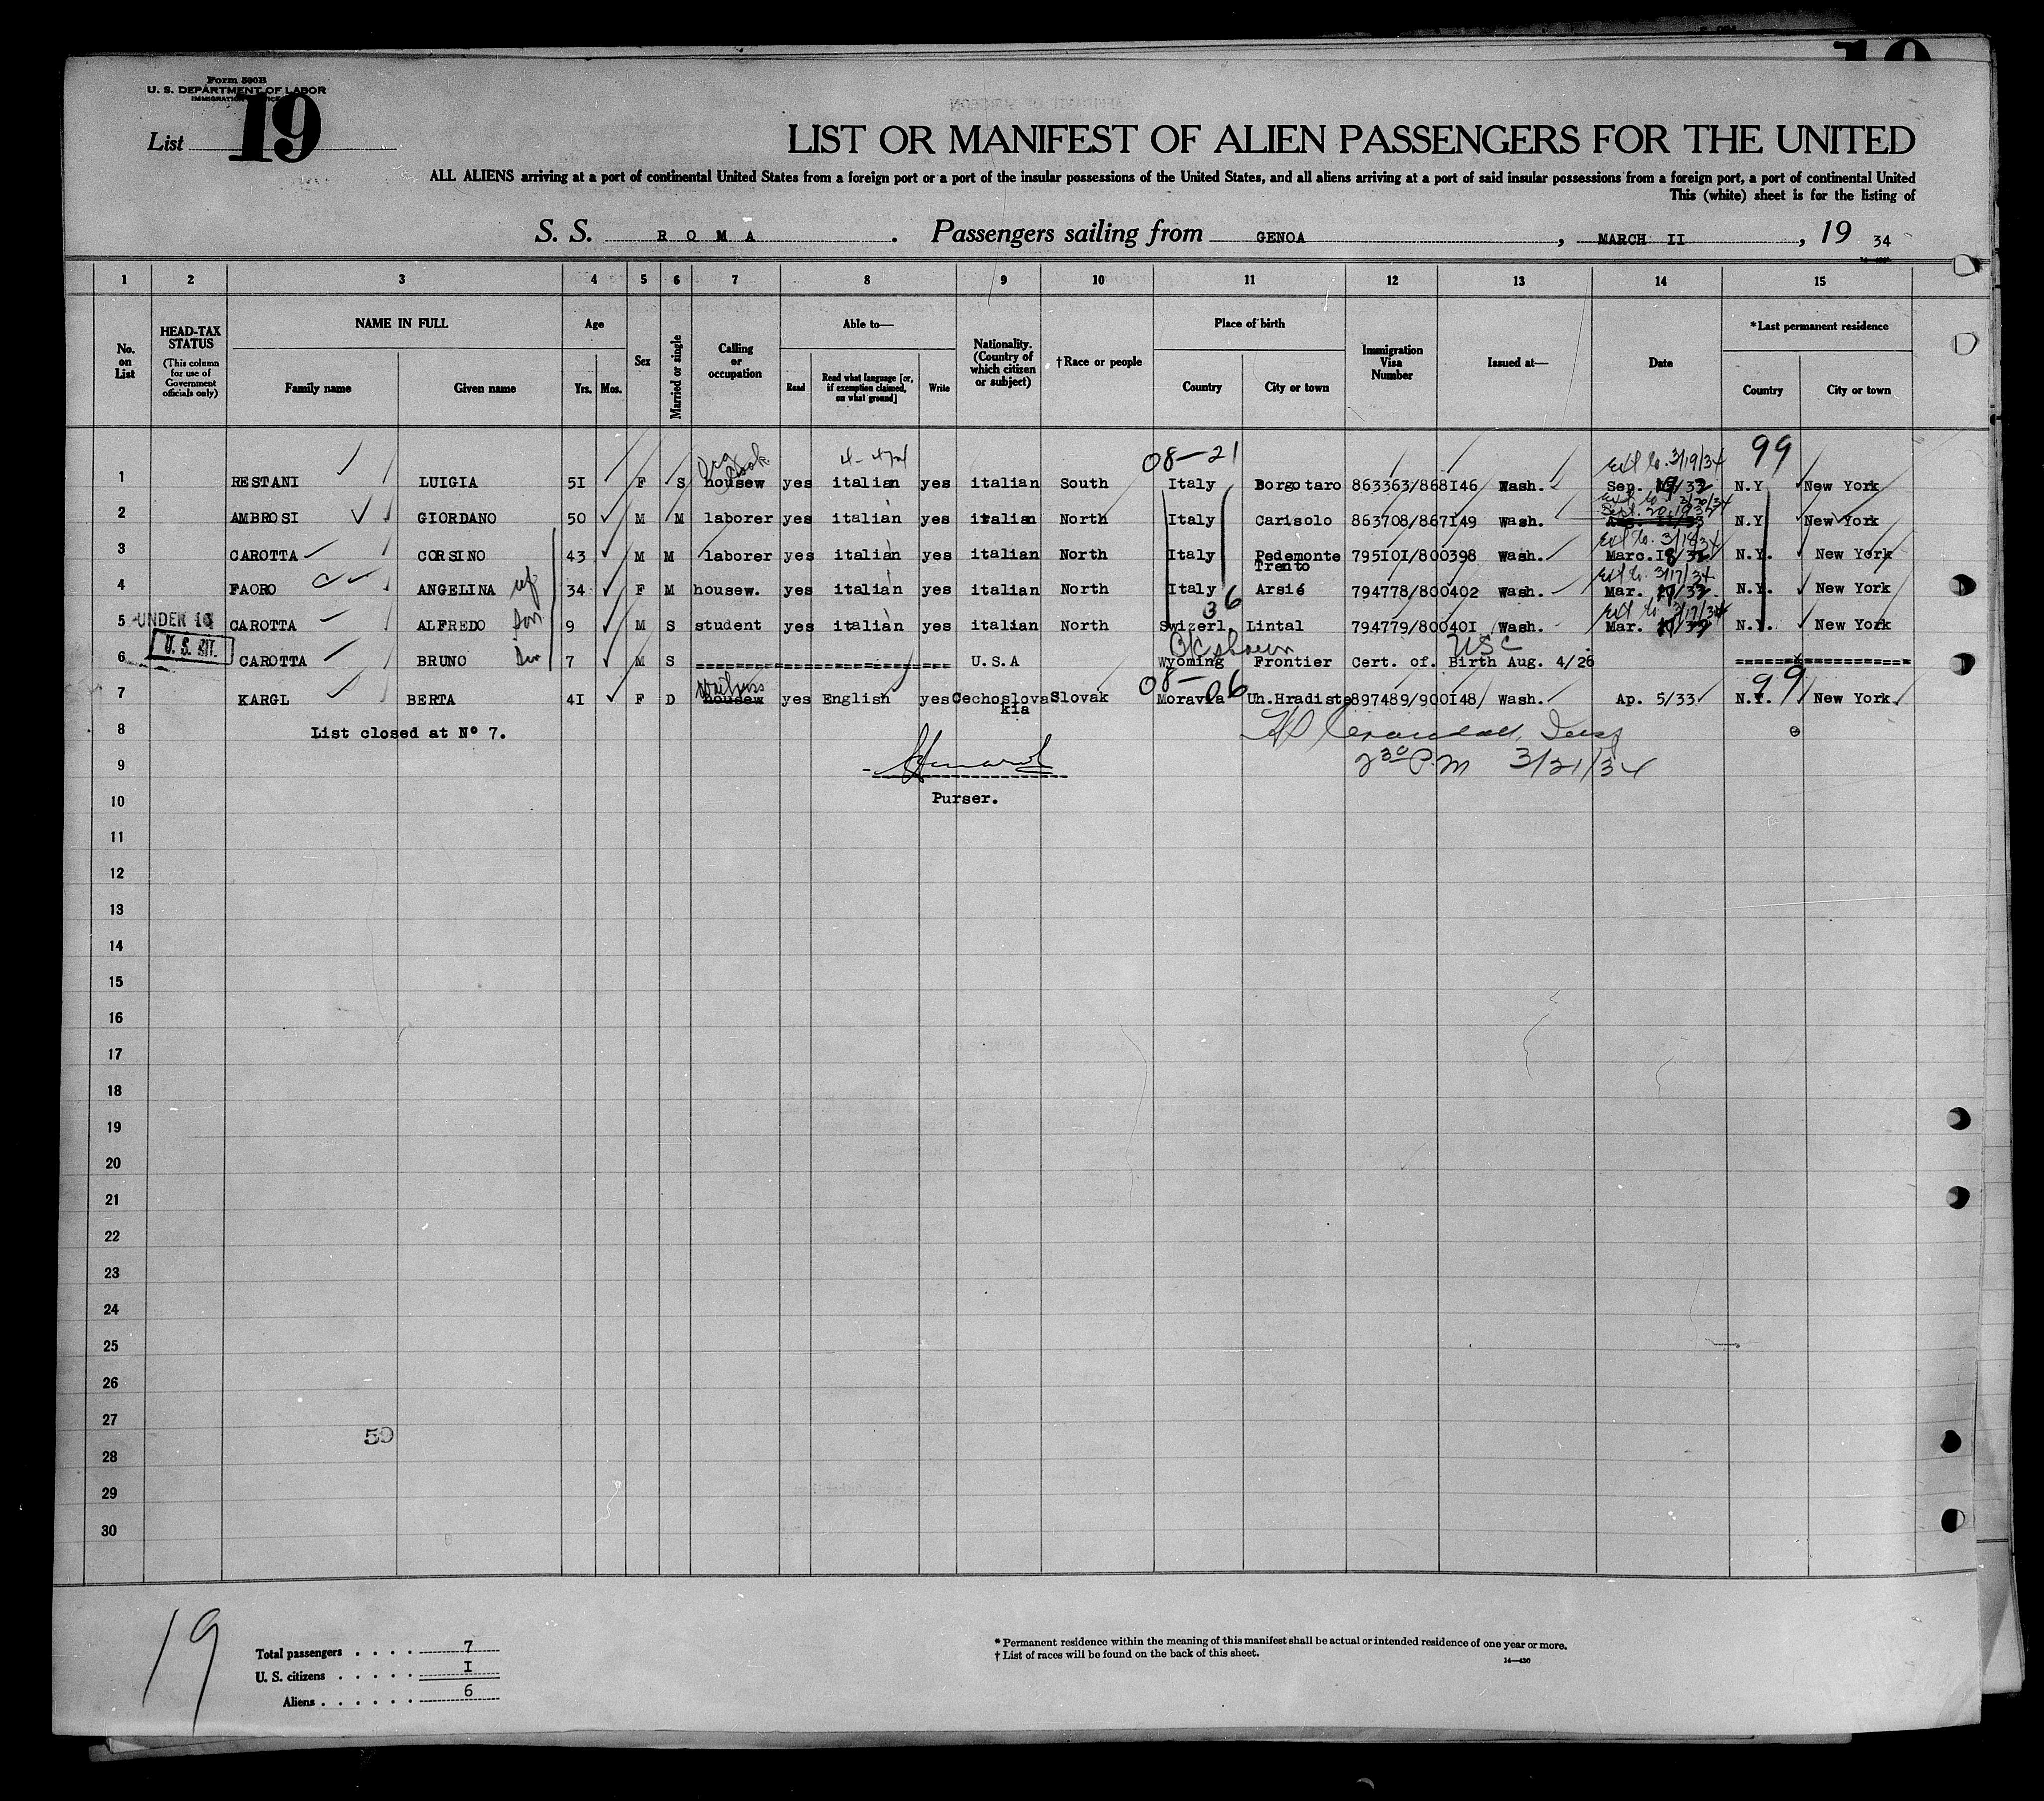 Form 500B
U. S. DEPARTMENT OF LABOR
IMMIGRATION SERVICE
List 19
LIST OR MANIFEST OF ALIEN PASSENGERS FOR THE UNITED
ALL ALIENS arriving at a port of continental United States from a foreign port or a port of the insular possessions of the United States, and all aliens arriving at a port of said insular possessions from a foreign port, a port of continental United
This (white) sheet is for the listing of
S. S. ROMA. Passengers sailing from GENOA, MARCH II, 19 34
1 2 3 4 5 6 7 8 9 10 11 12 13 14 15
No. on List
HEAD-TAX STATUS
(This column for use of Government officials only)
NAME IN FULL
Family name Given name
Age
Yrs. Mos.
Sex
Married or single
Calling or occupation
Able to—
Read
Read what language [or, if exemption claimed, on what ground]
Write
Nationality. (Country of which citizen or subject)
† Race or people
Place of birth
Country City or town
Immigration Visa Number
Issued at—
Date
*Last permanent residence
Country City or town
08-21 3/19/34 99
1 RESTANI LUIGIA 5I F S cook housew yes italian yes italian South Italy Borgotaro 863363/868I46 Wash. Sep. N.Y New York
3/20/34
Sept. 20, 193
2 AMBROSI GIORDANO 50 M M laborer yes italian yes italian North Italy Carisolo 863708/867I49 Wash. Aug. 11/33 N.Y New York
3/18/34
3 CAROTTA CORSINO 43 M M laborer yes italian yes italian North Italy Pedemonte Trento 795I0I/800398 Wash. Marc. N.Y. New York
3/17/34
4 FAORO ANGELINA wf 34 F M housew. yes italian yes italian North Italy Arsié 794778/800402 Wash. Mar. N.Y. New York
36 3/17/34
5 UNDER 16 CAROTTA ALFREDO son 9 M S student yes italian yes italian North Swizerl Lintal 794779/80040I Wash. Mar. N.Y. New York
OK shown USC
6 U.S. CIT. CAROTTA BRUNO son 7 M S U.S.A Wyoming Frontier Cert. of. Birth Aug. 4/26
08-06 99
7 KARGL BERTA 4I F D Waitress housew yes English yes Cechoslovakia Slovak Moravia Uh.Hradiste 897489/900I48 Wash. Ap. 5/33 N.Y. New York
8 List closed at Nº 7.
9 2 30 P.M 3/21/34
10 Purser.
11
12
13
14
15
16
17
18
19
20
21
22
23
24
25
26
27
50
28
29
30
19
Total passengers . . . . 7
U. S. citizens . . . . . I
Aliens . . . . . . 6
* Permanent residence within the meaning of this manifest shall be actual or intended residence of one year or more.
† List of races will be found on the back of this sheet.
14—436